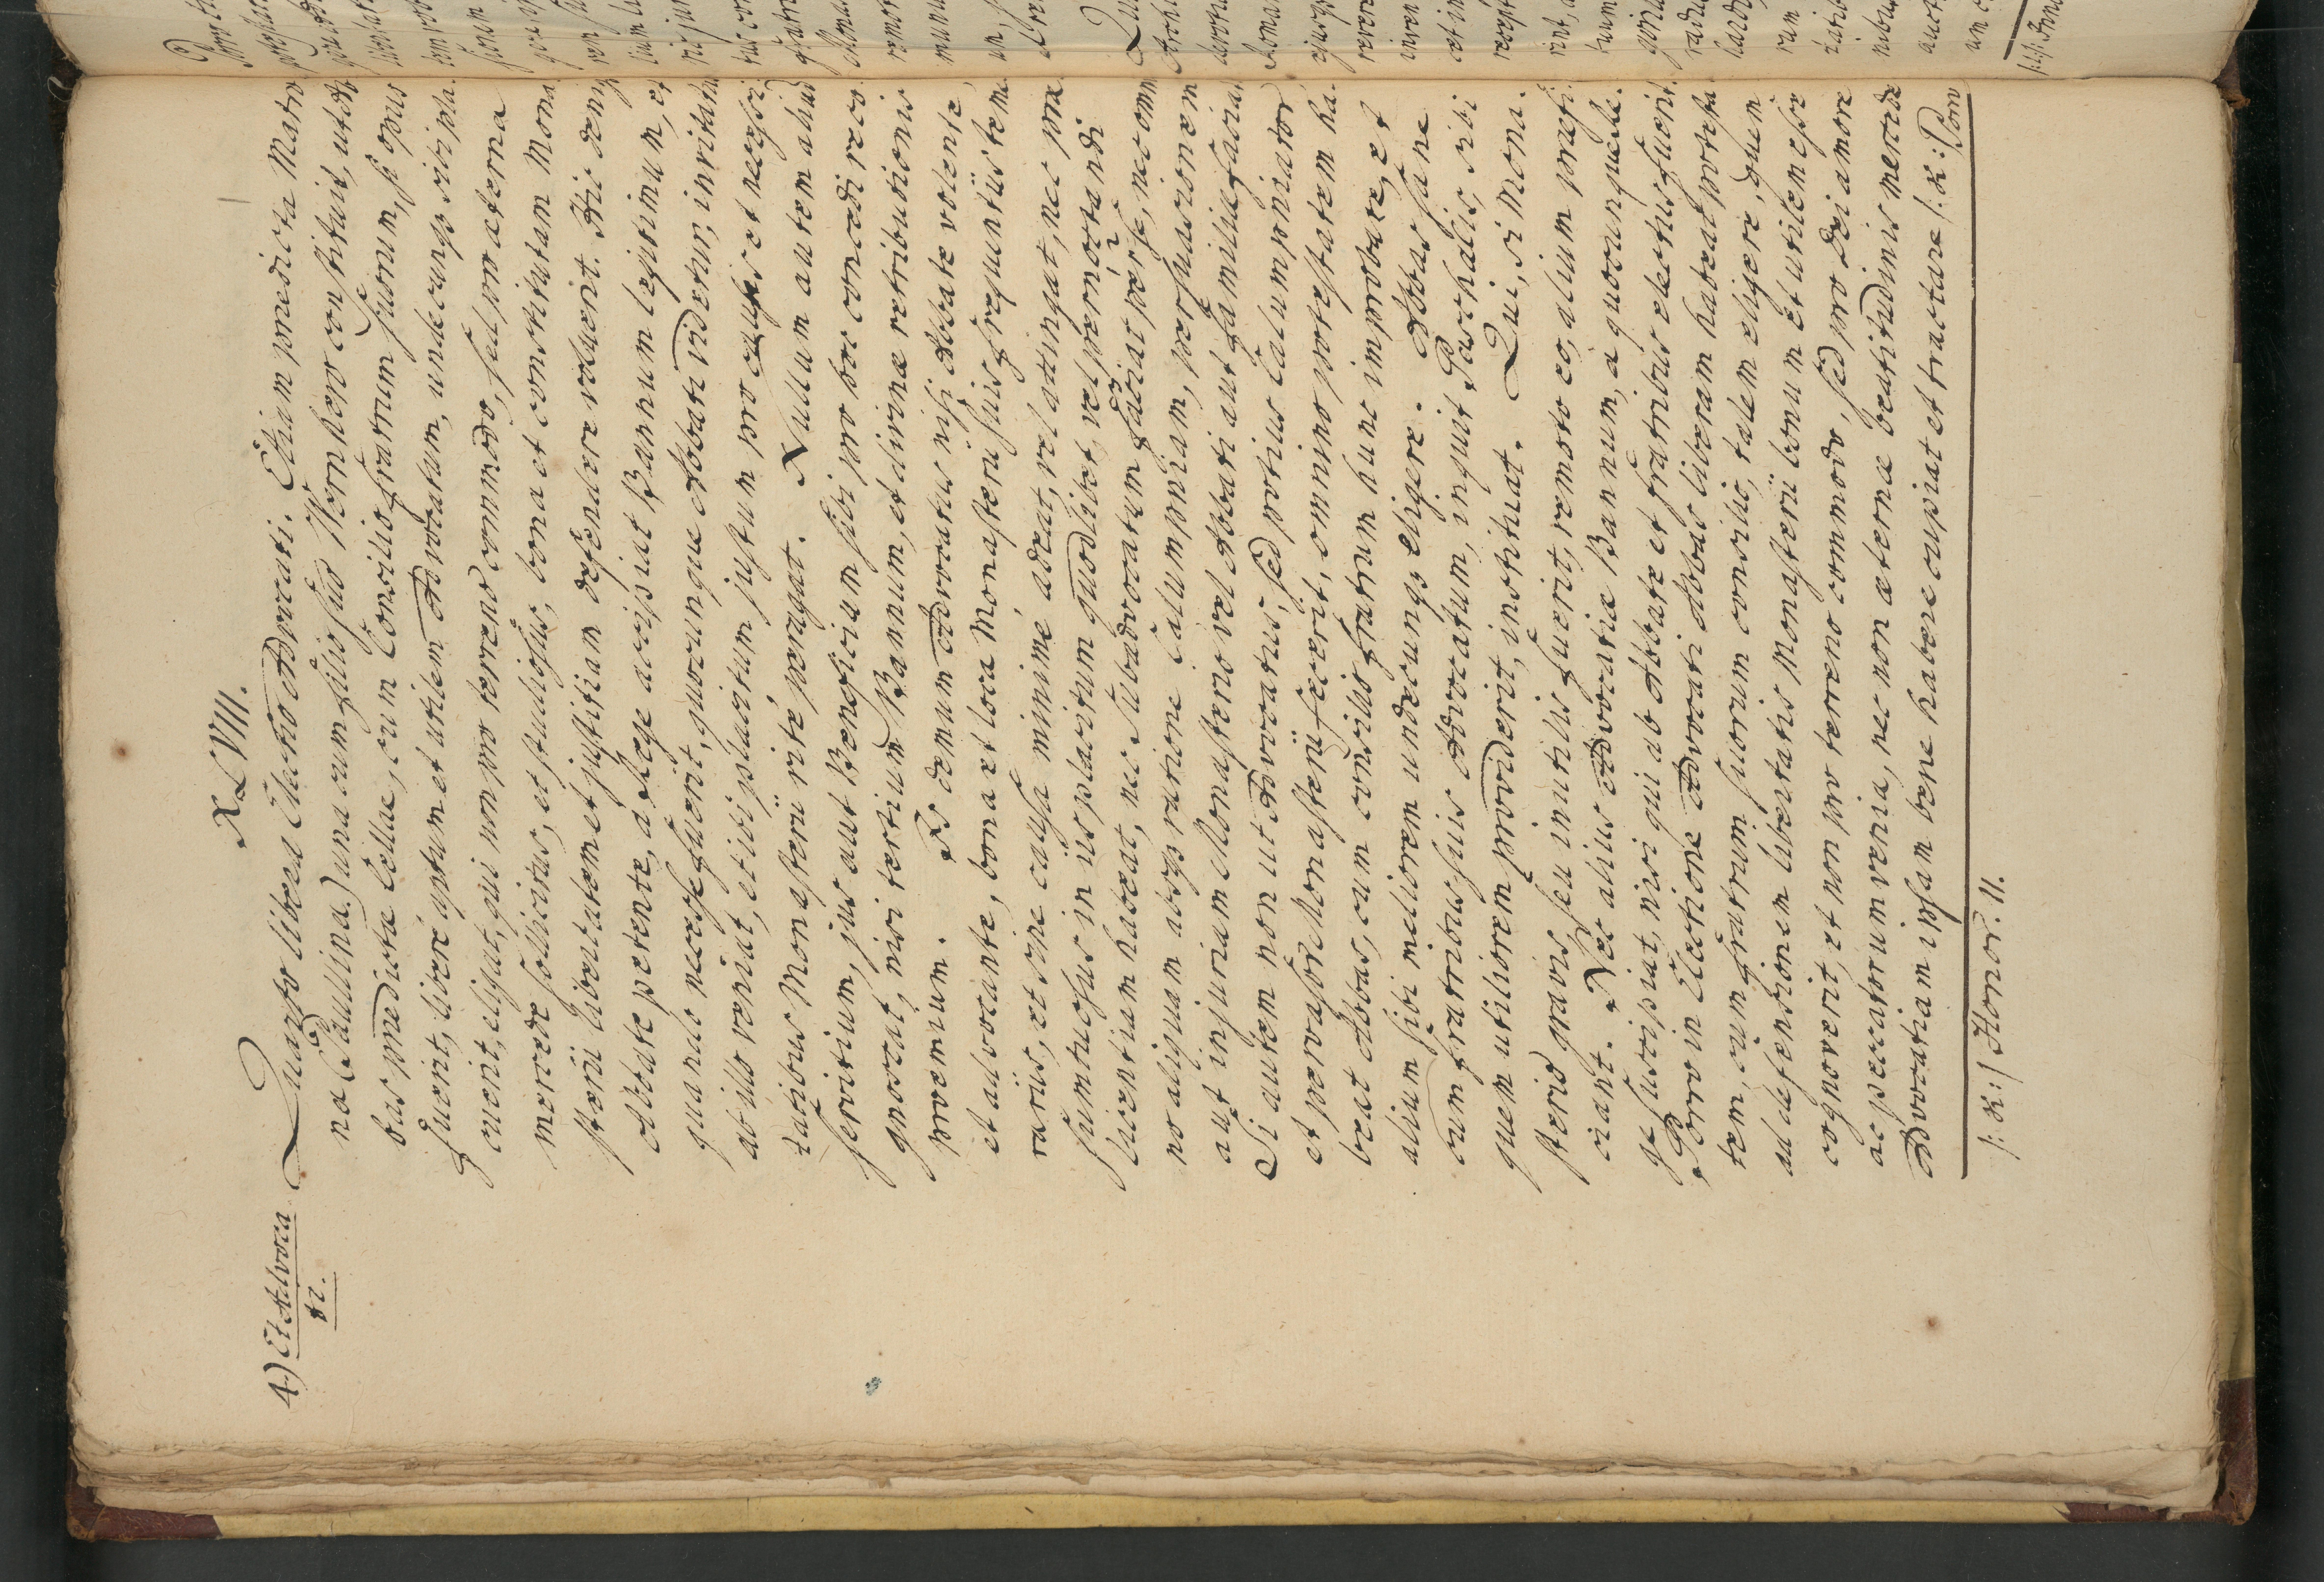 XLVIII.
4) Et Advoca
ti.
Quarto libera Electio Advocati. Etiam praedicta Matro
na (Paullina.) una cum filio suo Wernhero constituit, ut Ab
bas praedictae Cellae, cum Consilio fratrum suorum, si opus
fuerit, libere aptum et utilem Advocatum, undecunqs sibi pla
cuerit, eligat, qui non pro terreno commodo, sed pro aeterna
mercede sollicitus, et studiosus, bona et constitutam Mona
sterii libertatem et justitiam defendere voluerit. Hic deniqs
Abbate petente, a Rege accipiat Bannum legitimum, et
quando necesse fuerit, quocunque Abbati videtur, invitatus
ab illo veniat, et ibi placitum justum pro causis et necessi
tatibus Monasterii rité peragat. Nullum autem aliud
servitium, jus aut Beneficium sibi pro hoc concedi reco
gnoscat, nisi tertium Bannum, et divinae retributionis
proemium. Is demum Advocatus nisi Abbate volente,
et advocante, bona et loca Monasterii suis frequentiis teme
rariis, et sine causa minimé adeat, vel attingat, nec prae
sumtuosus in iis placitum quodlibet, vel pernoctandi
licentiam habeat, nec Subadvocatum faciat per se, nec omni
no aliquam absqs ratione Calumpniam, persuasionem
aut injuriam Monasterio vel Abbati aut familiae faciat.
Si autem non ut Advocatus, sed potius Calumpniator
et pervasor Monasterii fecerit, omnino potestatem ha
beat Abbas, cum consilio fratrum hunc improbare, et
alium sibi meliorem undecunqs eligere. Abbas sane
cum fratribus suis Advocatum, inquit Paschalis, sibi
quem utiliorem providerit, instituat. Qui, si Mona.
sterio gravis, seu inutilis fuerit, remoto eo, alium praefi
ciant. Nec alius Advocatiae Bannum, a quocunque Re
ge suscipiat, nisi qui ab Abbate et fratribus electus fuerit.
Porro in Electione Advocati Abbas liberam habeat potesta
tem, cum fratrum suorum consilio, talem eligere, quem
ad defensionem libertatis Monasterii bonum et utilem esse
cognoverit, et non pro terreno commodo, sed pro Dei amore
ac peccatorum venia, nec non aeternae beatitudinis mercede
Advocatiam ipsam bene habere cupiat et tractare /: K: Porro
/: K: / Honor. II.